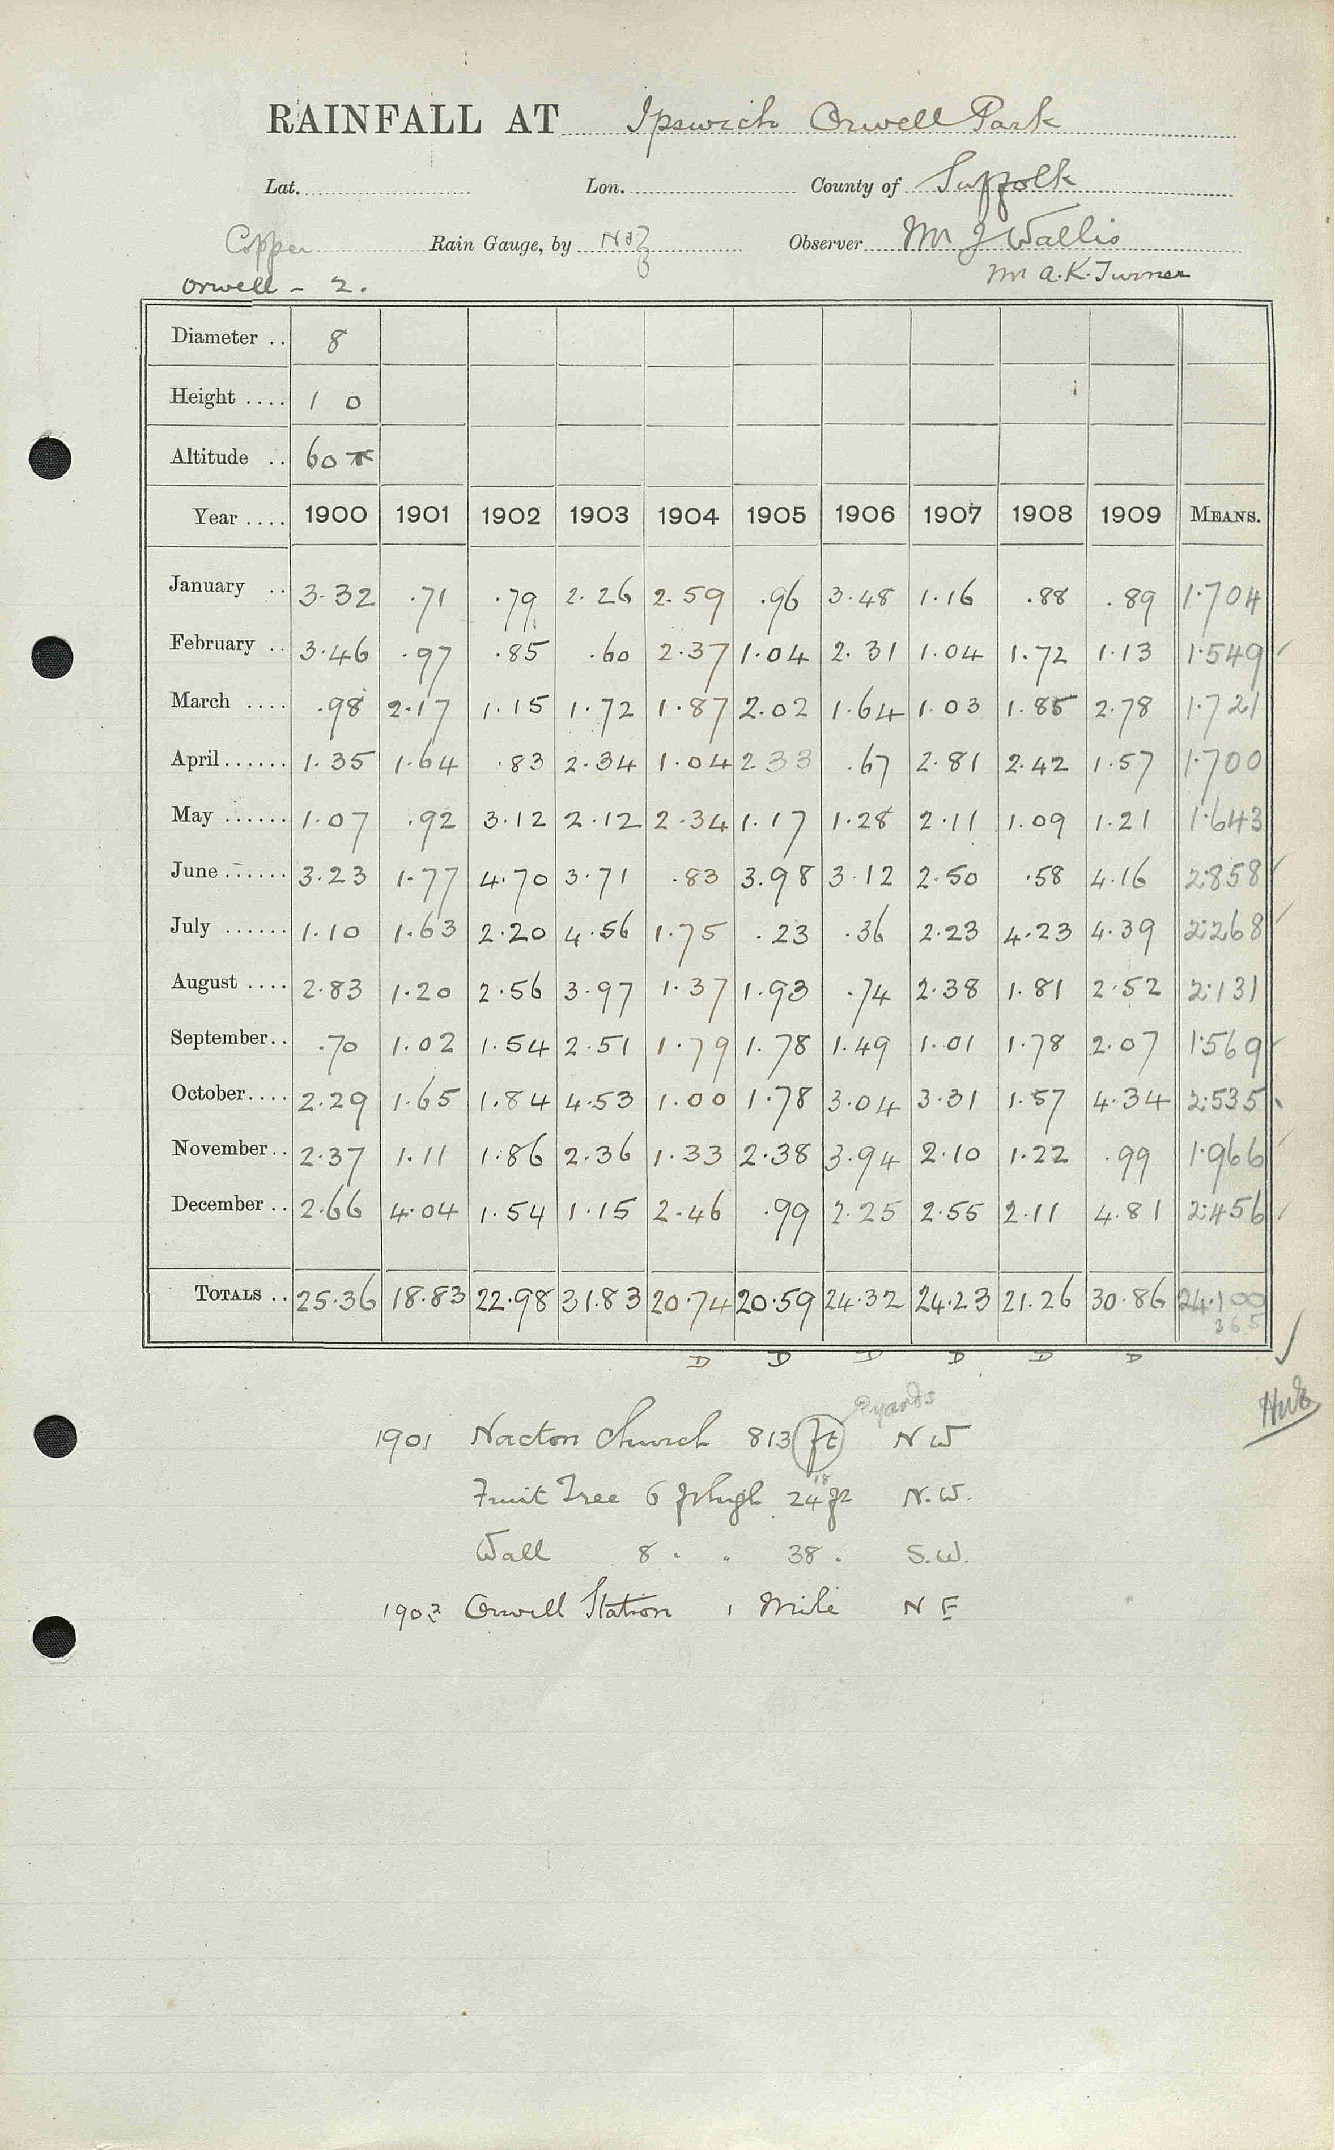 RAINFALL AT Ipswich Orwell Park
Lat. Lon. County of Suffolk
Copper Rain Gauge, by N&Z Observer Mr J Wallis
Orwell - 2. Mr A.K. Turner
Diameter .. 8
Height .... 1 0
Altitude .. 60
Year .... 1900 1901 1902 1903 1904 1905 1906 1907 1908 1909 MEANS.
January .. 3.32 .71 .79 2.26 2.59 .96 3.48 1.16 .88 .89 1.704
February .. 3.46 .97 .85 .60 2.37 1.04 2.31 1.04 1.72 1.13 1.549
March .... .98 2.17 1.15 1.72 1.87 2.02 1.64 1.03 1.85 2.78 1.721
April...... 1.35 1.64 .83 2.34 1.04 2 33 .67 2.81 2.42 1.57 1.700
May ...... 1.07 .92 3.12 2.12 2.34 1.17 1.28 2.11 1.09 1.21 1.643
June ...... 3.23 1.77 4.70 3.71 .83 3.98 3.12 2.50 .58 4.16 2.858
July ...... 1.10 1.63 2.20 4.56 1.75 .23 .36 2.23 4.23 4.39 2.268
August .... 2.83 1.20 2.56 3.97 1.37 1.93 .74 2.38 1.81 2.52 2.131
September.. .70 1.02 1.54 2.51 1.79 1.78 1.49 1.01 1.78 2.07 1.569
October.... 2.29 1.65 1.84 4.53 1.00 1.78 3.04 3.31 1.57 4.34 2.535
November.. 2.37 1.11 1.86 2.36 1.33 2.38 3.94 2.10 1.22 .99 1.966
December .. 2.66 4.04 1.54 1.15 2.46 .99 2.25 2.55 2.11 4.81 2.456
TOTALS .. 25.36 18.83 22.98 31.83 20.74 20.59 24.32 24.23 21.26 30.86 24.100
36 5
D D D D D D
yards
1901 Nacton Church 813 ft N W
18
Fruit Tree 6 ft high 24 ft N.W.
Wall 8 " " 38 " S.W.
1902 Orwell Station 1 Mile N E